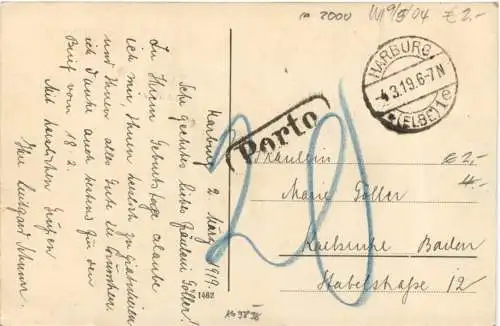 n 2000 9/5 04 € 2.-
HARBURG
4.3.19.6-7N
* (ELBE) 1e
Porto
20
Harburg 2. März 1919.
Sehr geehrtes liebes Fräulein Göller!
Zu Ihrem Geburtstage erlaube
ich mir, Ihnen herzlich zu gratulieren
und Ihnen alles Gute zu wünschen.
Ich danke auch bestens für den
Brief vom 18.2.
Mit herzlichen Grüßen
Ihre
Fräulein
€ 2,-
Marie Göller
4.-
Karlsruhe Baden
Stabelstraße 12
1462